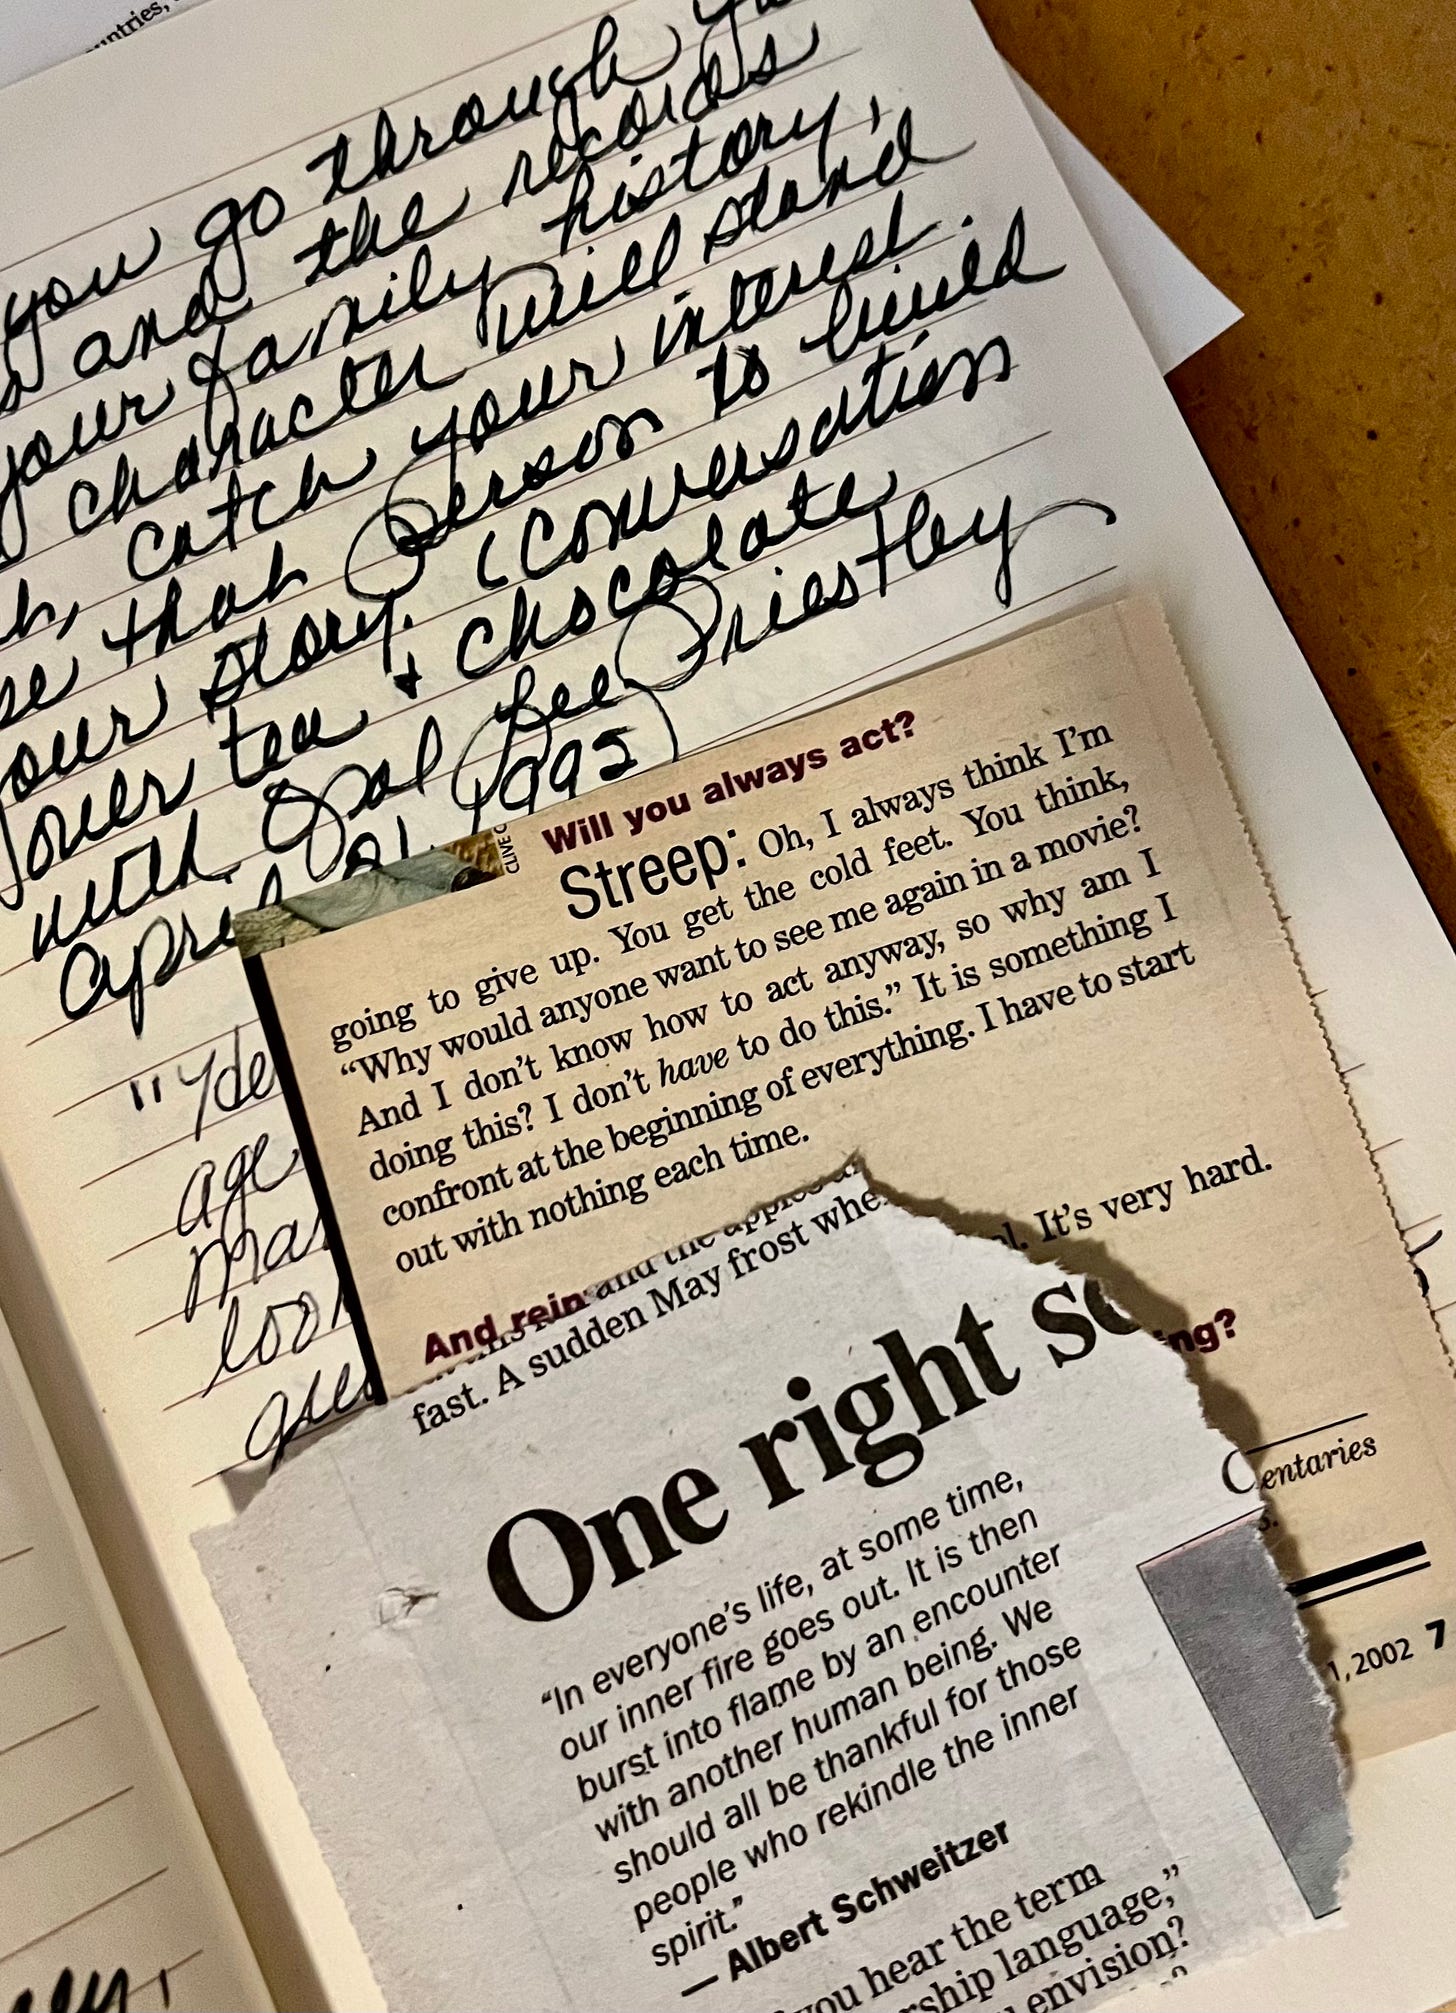 untries,
you go through
and the records
your family history,
character will stand
catch your interest.
that Person to build
your story. (Conversation
over tea + chocolate
with Opal Lee Priestley
April 21, 1992)
age
loo
CLIVE
Will you always act?
Streep: Oh, I always think I’m
going to give up. You get the cold feet. You think,
“Why would anyone want to see me again in a movie?
And I don’t know how to act anyway, so why am I
doing this? I don’t have to do this.” It is something I
confront at the beginning of everything. I have to start
out with nothing each time.
And rein
It’s very hard.
ing?
and the apples
fast. A sudden May frost whe
One right so
entaries
s.
1, 2002 7
“In everyone’s life, at some time,
our inner fire goes out. It is then
burst into flame by an encounter
with another human being. We
should all be thankful for those
people who rekindle the inner
spirit.”
— Albert Schweitzer
you hear the term
rship language,”
envision?